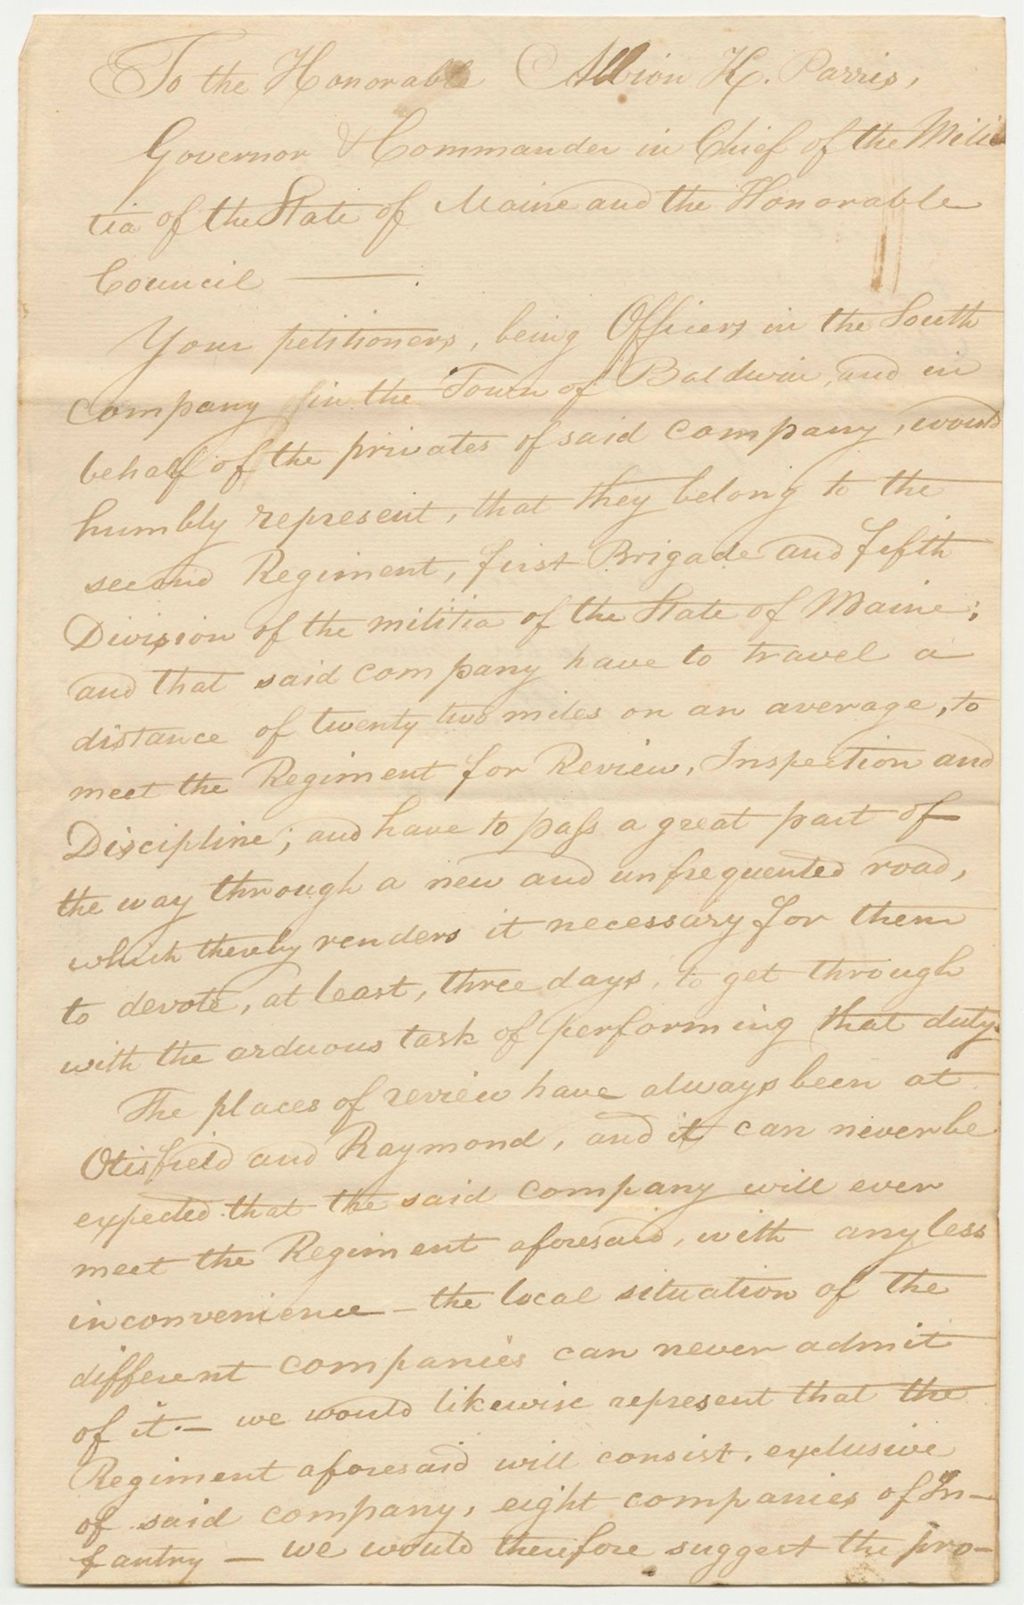 To the Honorable Albion K. Parris,
Governor & Commander in Chief of the Mili
tia of the State of Maine and the Honorable
Council —
Your petitioners, being Officers in the South
company in the Town of Baldwin, and in
behalf of the privates of said company, would
humbly represent, that they belong to the
second Regiment, first Brigade and fifth
Division of the militia of the State of Maine;
and that said company have to travel a
distance of twenty two miles on an average, to
meet the Regiment for Review, Inspection and
Discipline; and have to pass a great part of
the way through a new and unfrequented road,
which thereby renders it necessary for them
to devote, at least, three days, to get through
with the arduous task of performing that duty.
The places of review have always been at
Otisfield and Raymond, and it can never be
expected that the said company will ever
meet the Regiment aforesaid, with any less
inconvenience – the local situation of the
different companies can never admit
of it. – we would likewise represent that the
Regiment aforesaid will consist, exclusive
of said company, eight companies of In–
fantry – we would therefore suggest the pro–